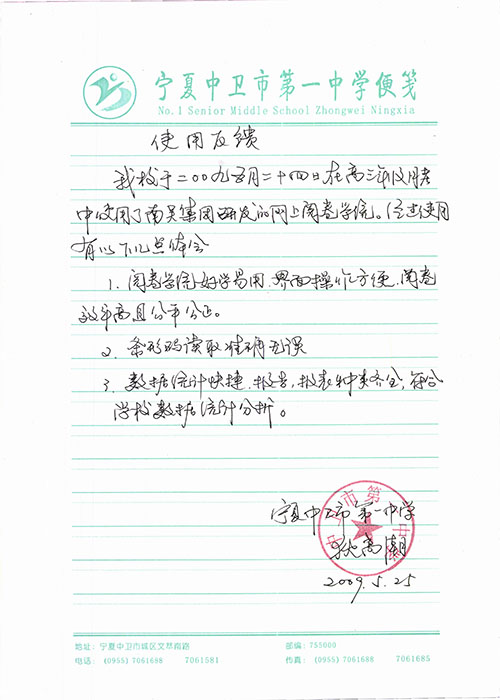 宁夏中卫市第一中学便笺
No.1 Senior Middle School Zhongwei Ningxia
使用反馈
我校于二〇〇九年五月二十四日在高三年级月考
中使用了南昊集团研发的网上阅卷系统。经过使用
有以下几点体会
1、阅卷系统好学易用、界面操作方便、阅卷
效率高且公平公正。
2、条形码读取准确无误
3、数据统计快捷、报告、报表种类齐全，符合
学校数据统计分析。
宁夏中卫市第一中学
狄高潮
2009.5.25
地址：宁夏中卫市城区文萃南路 邮编：755000
电话：(0955) 7061688 7061581 传真：(0955) 7061688 7061685